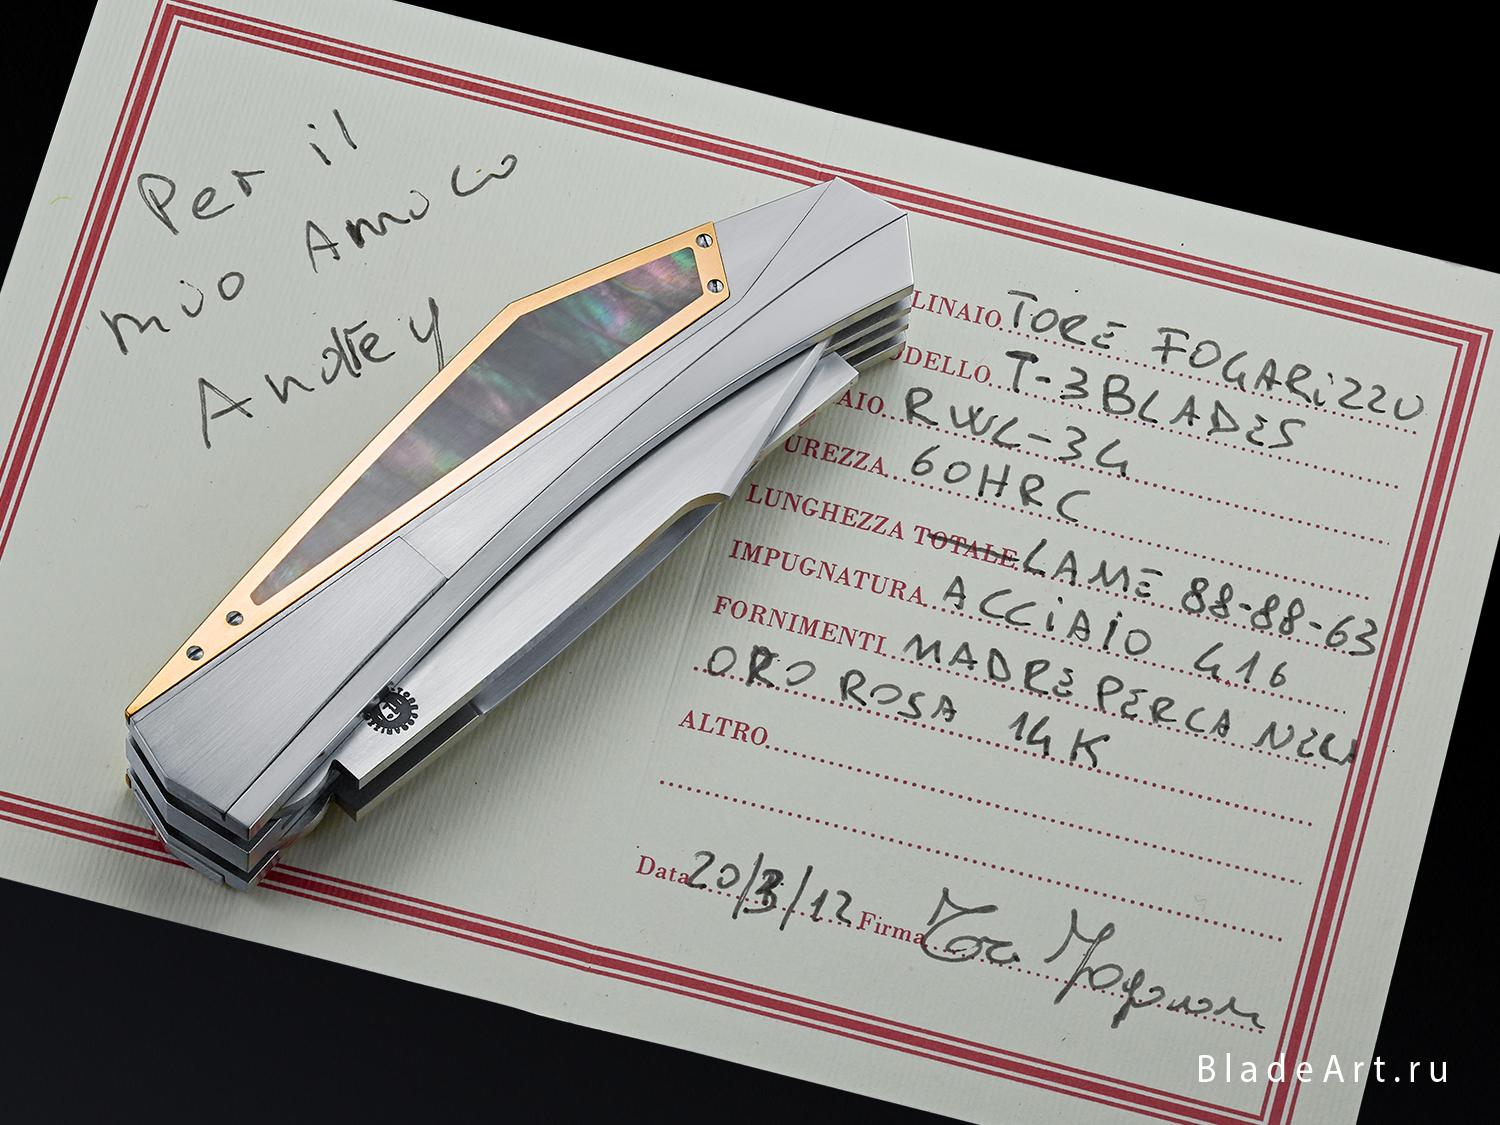 Per il
mio Amico
Andrey
LINAIO TORE FOGARIZZU
ODELLO T-3BLADES
AIO RWL-34
UREZZA 60HRC
LUNGHEZZA TOTALE LAME 88-88-63
IMPUGNATURA ACCIAIO 416
FORNIMENTI MADREPERLA NERA
ORO ROSA 14K
ALTRO
Data 20/3/12 Firma
BladeArt.ru